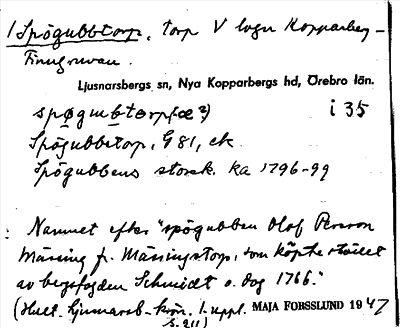 1 Spögubbtorp, torp V lagn Kopparberg -
Finngruvan.
Ljusnarsbergs sn, Nya Kopparbergs hd, Örebro län.
spøgubtorp(æ²) i 35
Spögubbetorp, G 81, ek
Spögubbens storsk. ka 1796-99
: Namnet efter "spögubben Olof Persson
Mässing fr. Mässingstorp, som köpte stället
av bergsfogden Schmidt o. dog 1766."
(Hult. Ljusnarsb-krön. 1. uppl. MAJA FORSSLUND 1947
s. 211)